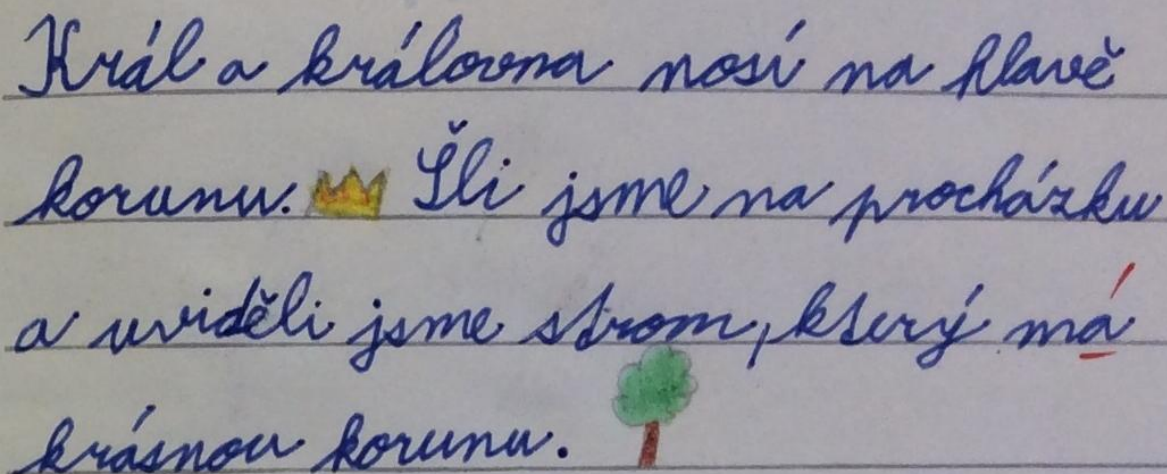 Král a královna nosí na hlavě
korunu. Šli jsme na procházku
a uviděli jsme strom, který má
krásnou korunu.